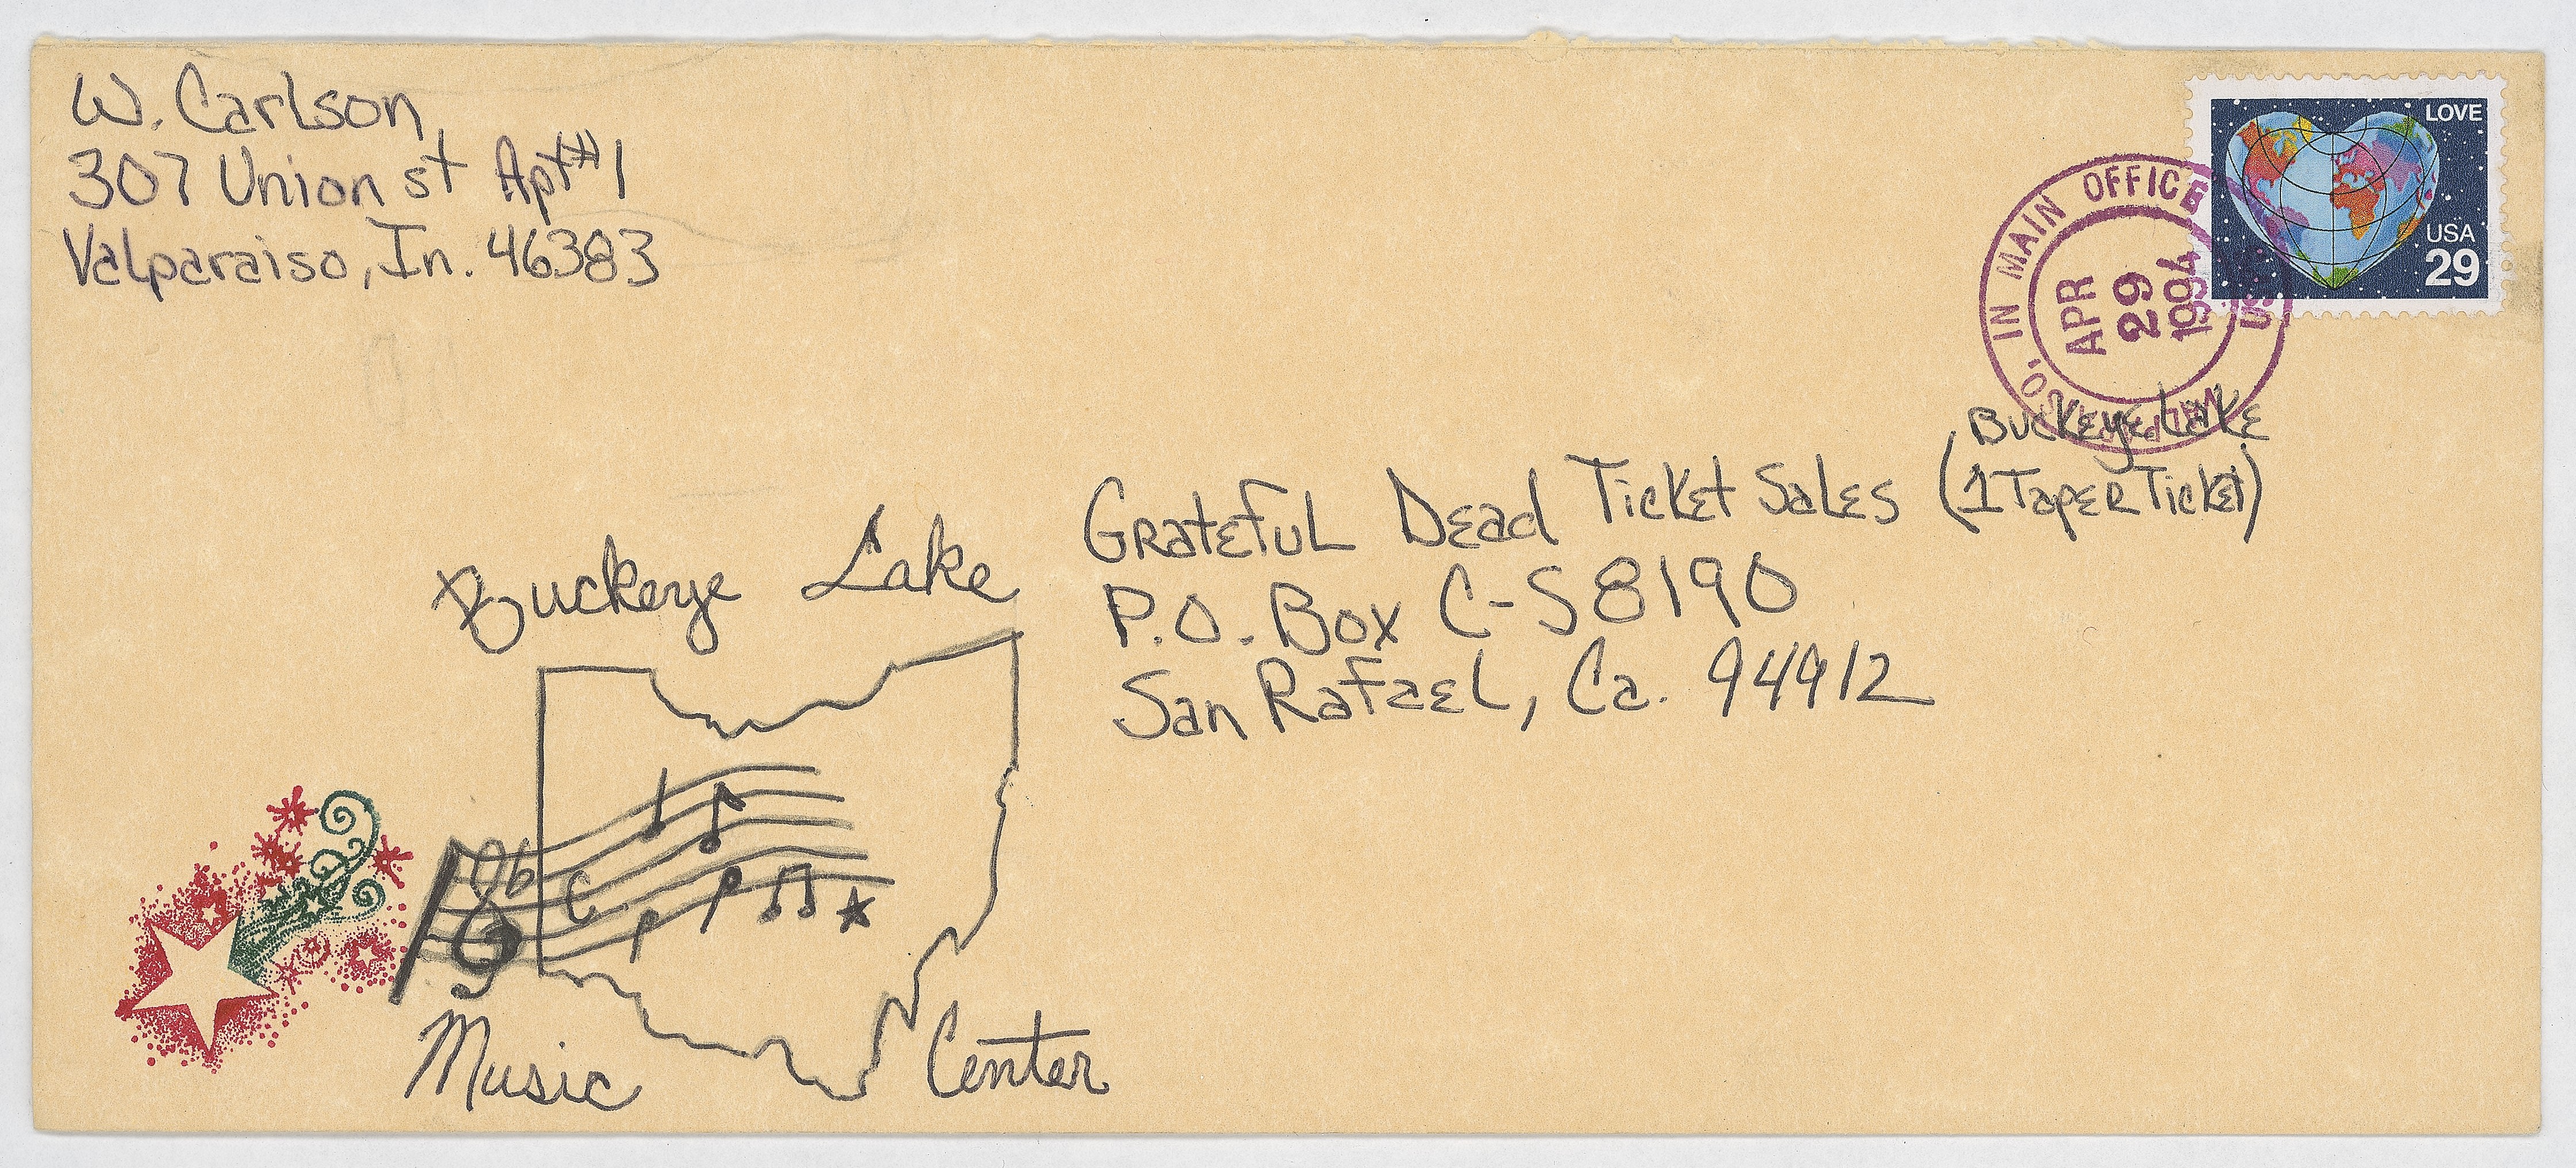 W. Carlson
307 Union st Apt #1
Valparaiso, In. 46383
LOVE
USA
29
IN MAIN OFFICE
APR
29
1994
Buckeye Lake
(1 Taper Ticket)
Grateful Dead Ticket Sales
P.O. Box C-S8190
San Rafael, Ca. 94912
Buckeye Lake
Music Center